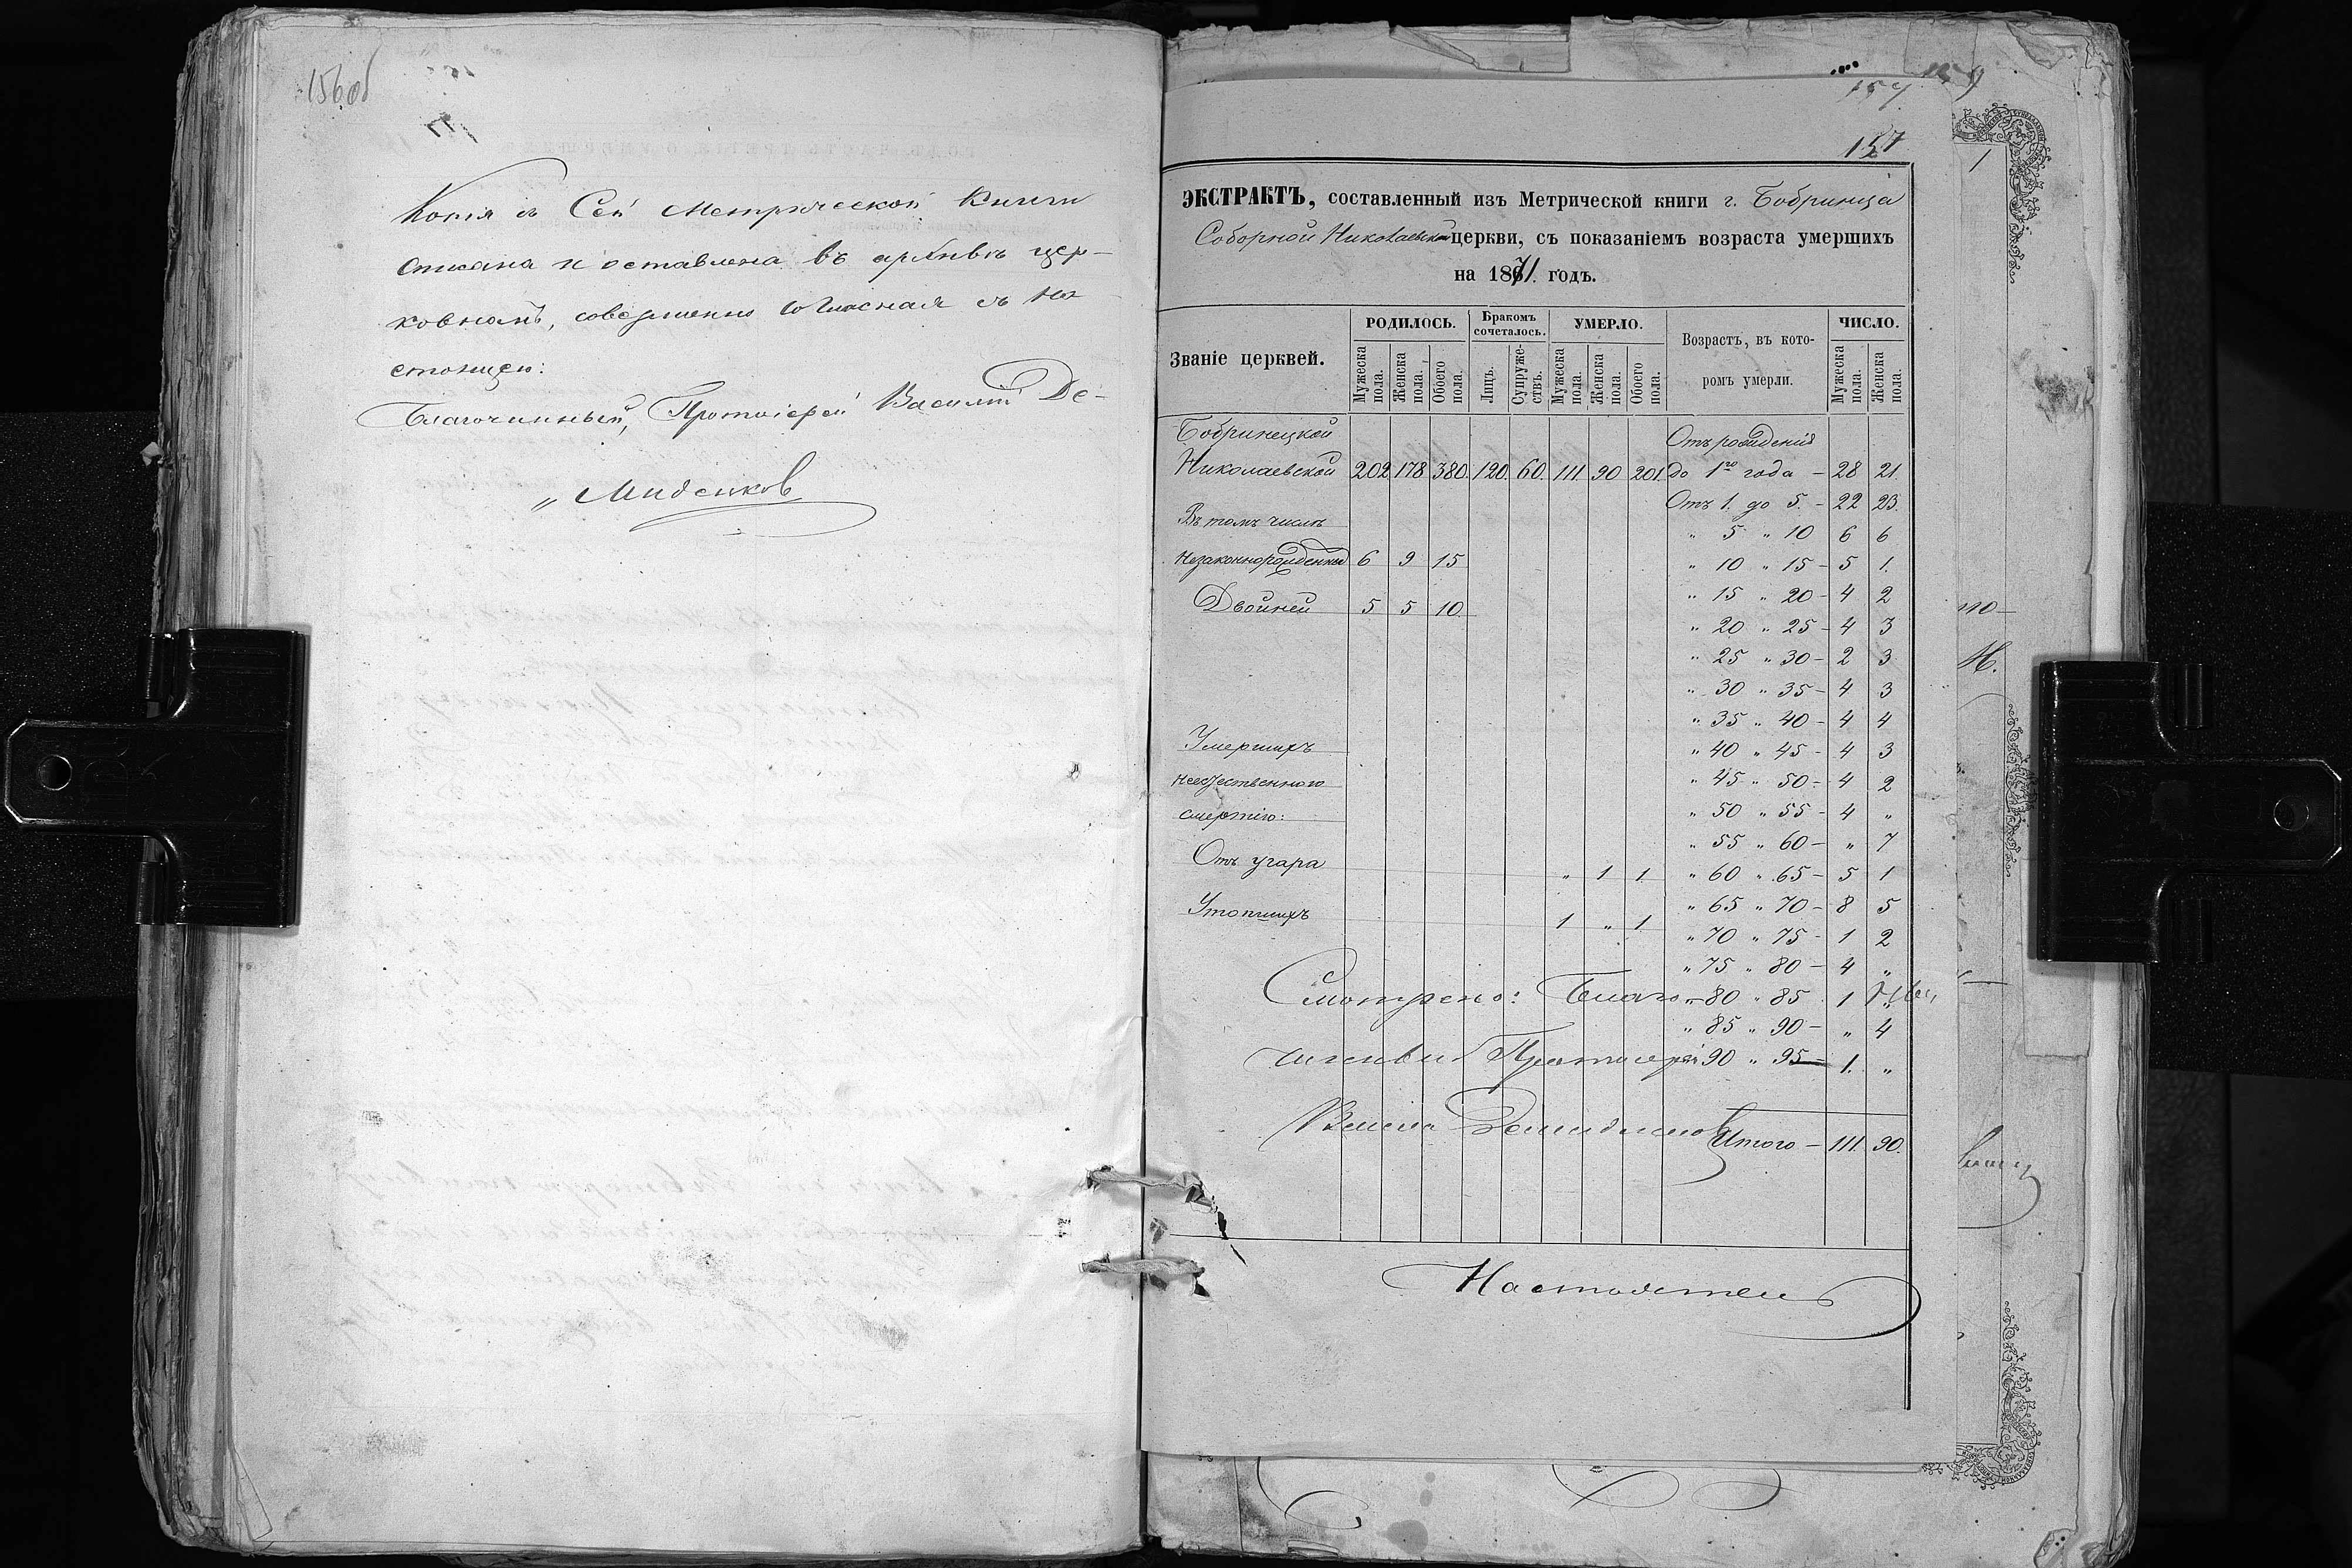 156 об
Копія съ Сей Метрической Книги
списана и оставлена въ архивѣ цер-
ковномъ, совершенно согласная съ на
стоящею:
Благочинный, Протоіерей Василій Де-
„ Миденков
157
157
ЭКСТРАКТЪ, составленный изъ Метрической книги г. Бобринца
Соборной Николаевской церкви, съ показаніемъ возраста умершихъ
на 1871. годъ.
Званіе церквей. РОДИЛОСЬ. Бракомъ сочеталось. УМЕРЛО. Возрастъ, въ кото-ромъ умерли. ЧИСЛО.
Мужеска пола. Женска пола. Обоего пола. Лицъ. Супруже-ствъ. Мужеска пола. Женска пола. Обоего пола. Мужеска пола. Женска пола.
Бобринецкой Отъ рожденія
Николаевской 202 178 380. 120. 60. 111. 90 201. до 1го года – 28 21.
Отъ 1. до 5. – 22 23.
Въ томъ числѣ
„ 5 „ 10 6 6
Незаконнорожденных 6 9 15
„ 10 „ 15 – 5 1.
„ 15 „ 20 – 4 2
Двойней 5 5 10.
„ 20 „ 25 – 4 3
„ 25 „ 30 – 2 3
„ 30 „ 35 – 4 3
„ 35 „ 40 – 4 4
Умершихъ „ 40 „ 45 – 4 3
неестественною „ 45 „ 50 – 4 2
смертію: „ 50 „ 55 – 4 „
„ 55 „ 60 – „ 7
Отъ угара „ 1 1. „ 60 „ 65 – 5 1
„ 65 „ 70 – 8 5
Утопшихъ 1 „ 1
„ 70 „ 75 – 1 2
„ 75 „ 80 – 4 „
Смотрено: Благо- „ 80 „ 85 1 „
„ 85 „ 90 – „ 4
чинный Протоіерей „ 90 „ 95 – 1. „
Итого – 111. 90.
Настоятель